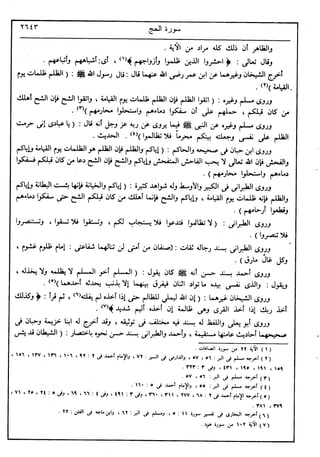 سورة الحج
٢٦٤٣
والظاهر أن ذلك كله مراد من الآية .
وقال تعالى : ﴿ احشروا الذين ظلموا وأزواجهم ﴾(١) ، أى : أشباههم وأتباعهم .
أخرج الشيخان وغيرهما عن ابن عمر رضى الله عنهما قال : قال رسول الله ﷺ : ( الظلم ظلمات يوم
القيامة )(٢) .
وروى مسلم وغيره : ( اتقوا الظلم فإن الظلم ظلمات يوم القيامة ، واتقوا الشح فإن الشح أهلك
من كان قبلكم ، حملهم على أن سفكوا دماءهم واستحلوا محارمهم )(٣) .
وروى مسلم وغيره عن النبى ﷺ فيما يروى عن ربه عز وجل أنه قال : ( يا عبادى إنى حرمت
الظلم على نفسى وجعلته بينكم محرماً فلا تظالموا )(٤) . الحديث .
وروى ابن حبان فى صحيحه والحاكم : ( إياكم والظلم فإن الظلم هو الظلمات يوم القيامة وإياكم
والفحش فإن الله تعالى لا يحب الفاحش المتفحش وإياكم والشح فإن الشح دعا من كان قبلكم فسفكوا
دماءهم واستحلوا محارمهم ) .
وروى الطبرانى فى الكبير والأوسط وله شواهد كثيرة : ( إياكم والخيانة فإنها بئست البطانة وإياكم
والظلم فإنه ظلمات يوم القيامة ، وإياكم والشح فإنما أهلك من كان قبلكم الشح حتى سفكوا دماءهم
وقطعوا أرحامهم ) .
وروى الطبرانى : ( لا تظالموا فتدعوا فلا يستجاب لكم ، وتستقوا فلا تسقوا ، وتستنصروا
فلا تنصروا ) .
وروى الطبرانى بسند رجاله ثقات : ( صنفان من أمتى لن تنالهما شفاعتى : إمام ظلوم غشوم ،
وكل غال مارق ) .
وروى أحمد بسند حسن أنه ﷺ كان يقول : ( المسلم أخو المسلم لا يظلمه ولا يخذله ،
ويقول : والذى نفسى بيده ما تواد اثنان فيفرق بينهما إلا بذنب يحدثه أحدهما )(٥) .
وروى الشيخان وغيرهما : ( إن الله ليملى للظالم حتى إذا أخذه لم يفلته )(٦) ، ثم قرأ : ﴿ وكذلك
أخذ ربك إذا أخذ القرى وهى ظالمة إن أخذه أليم شديد ﴾(٧) .
وروى أبو يعلى واللفظ له بسند فيه مختلف فى توثيقه ، وقد أخرج له ابنا خزيمة وحبان فى
صحيحهما أحاديث عامتها مستقيمة ، وأحمد والطبرانى بسند حسن نحوه باختصار : ( الشيطان قد يئس
(١) الآية ٢٢ من سورة الصافات .
(٢) أخرجه مسلم فى البر : ٥٦ ، ٥٧ ، والدارمى فى السير : ٧٢ ، والإمام أحمد فى ٢ : ٩٢ ، ١٠٦ ، ١٣٦ ، ١٣٧ ، ١٥٦ ،
١٥٩ ، ١٩١ ، ١٩٥ ، ٤٣١ ، وفى ٣ : ٣٢٣ .
(٣) أخرجه مسلم فى البر : ٥٦ ، ٥٧ .
(٤) أخرجه مسلم فى البر : ٥٥ ، والإمام أحمد فى ٥ : ١٦٠ .
(٥) أخرجه الإمام أحمد فى ٢ : ٦٨ ، ٢٧٧ ، ٣١١ ، ٣٦٠ ، وفى ٣ : ٤٩١ ، وفى ٤ : ٦٦ ، ٦٩ ، وفى ٥ : ٢٤ ، ٢٥ ، ٧١ ،
٣٧٩ ، ٣٨١ .
(٦) أخرجه البخارى فى تفسير سورة ١١ : ٥ ، ومسلم فى البر : ٦٢ ، وابن ماجه فى الفتن : ٢٢ .
(٧) الآية ١٠٢ من سورة هود .